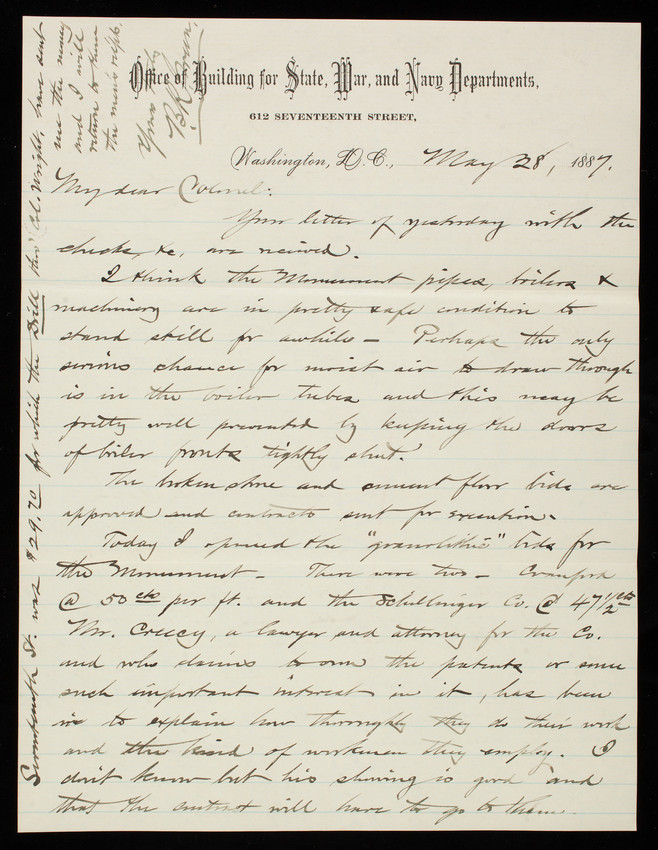 Office of Building for State, War, and Navy Departments,
612 SEVENTEENTH STREET,
Washington, D.C., May 28, 1887.
My dear Colonel:
Your letter of yesterday with the
checks, &c, are received.
I think the Monument pipes, boilers &
machinery are in pretty safe condition to
stand still for awhile - Perhaps the only
serious chance for moist air to draw through
is in the boiler tubes and this may be
pretty well prevented by keeping the doors
of boiler fronts tightly shut.
The broken stone and cement floor bids are
approved and contracts sent for execution.
Today I opened the "granolithic" bids for
the Monument - There were two - Cranford
@ 50 cts per ft. and the Schillinger Co. @ 47 1/2 cts
Mr. Creecy, a lawyer and attorney for the Co.
and who claims to own the patents or some
such important interest in it, has been
in to explain how thoroughly they do their work
and the kind of workmen they employ. I
don't know but his showing is good and
that the contract will have to go to them.
Seventeenth St. was $29.70 for which the Drill thro' Col. Wright, have sent
me the money
and I will
return to him
the men's rcpts.
Yours truly